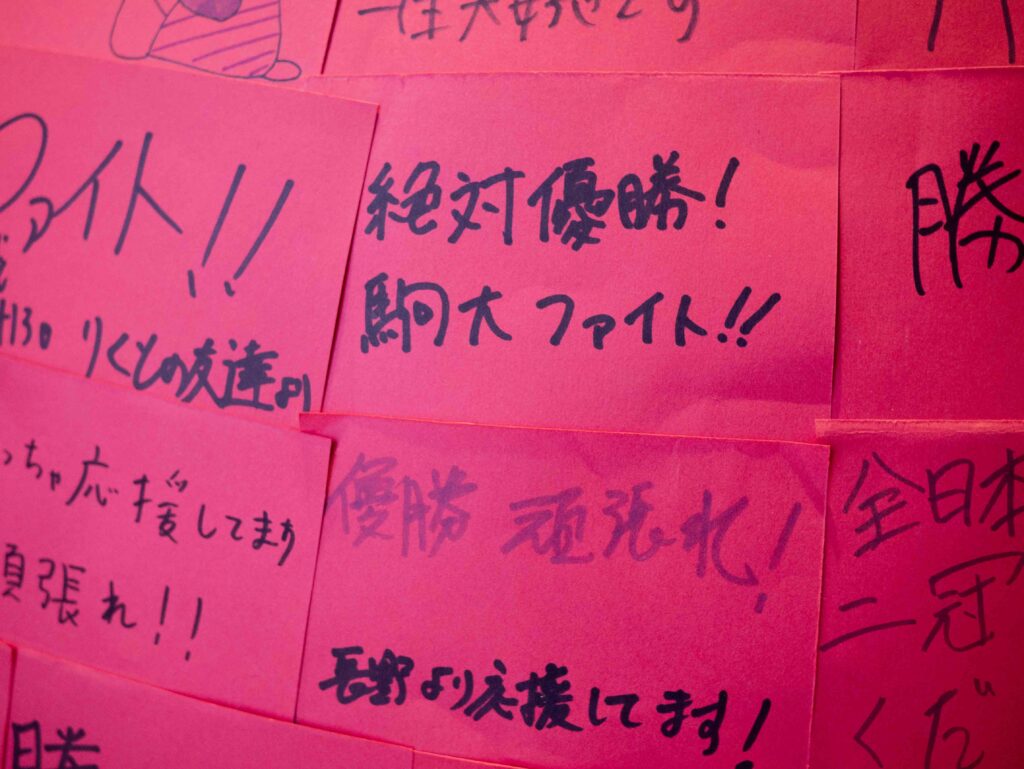 ファイト!!
りくとの友達より
絶対優勝!
駒大 ファイト!!
勝
っちゃ応援してます
頑張れ!!
優勝 頑張れ!
長野より応援してます!
全日本
二冠
くだ
勝